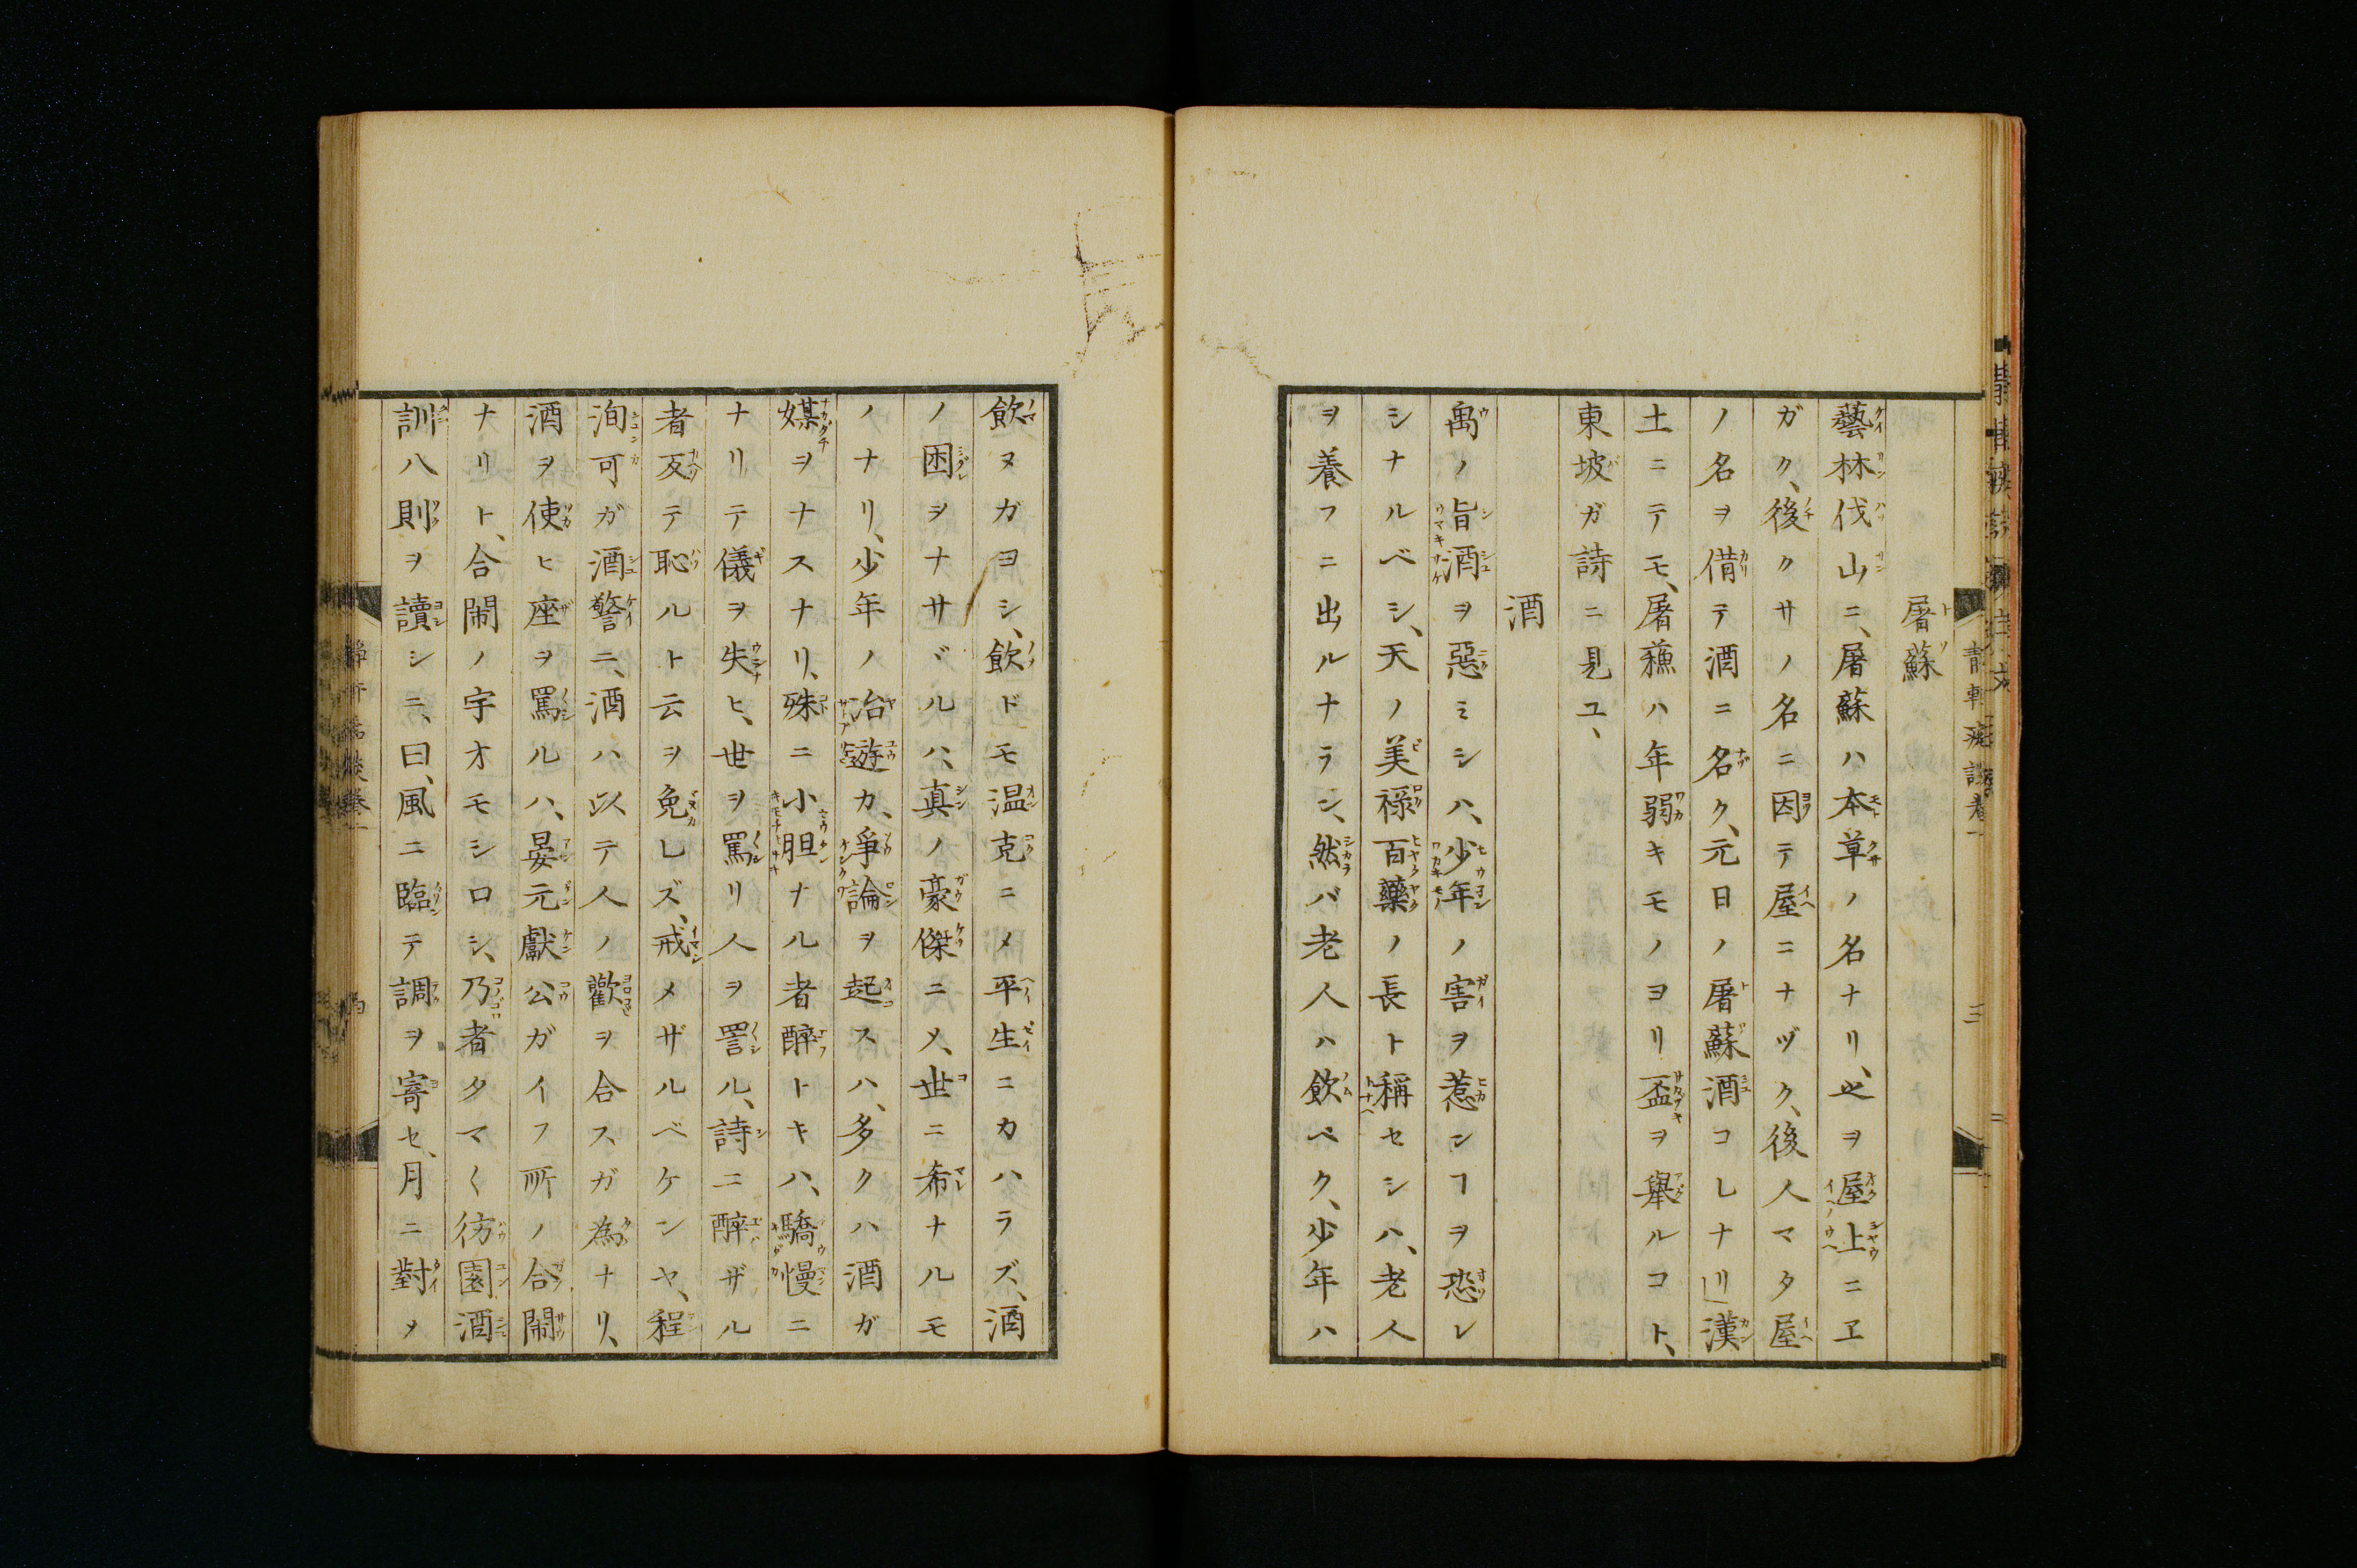 屠蘇
藝林伐山ニ、屠蘇ハ本草ノ名ナリ、之ヲ屋上ニヱ
ガク、後クサノ名ニ因テ屋ニナヅク、後人マタ屋
ノ名ヲ借テ酒ニ名ク、元日ノ屠蘇酒コレナリ」漢
土ニテモ、屠蘓ハ年弱キモノヨリ盃ヲ舉ルコト、
東坡ガ詩ニ見ユ、
酒
禹ノ旨酒ヲ惡ミシハ、少年ノ害ヲ惹ンヿヲ恐レ
シナルベシ、天ノ美祿百藥ノ長ト稱セシハ、老人
ヲ養フニ出ルナラン、然バ老人ハ飲ベク、少年ハ
飲ヌガヨシ、飲ドモ温克ニメ平生ニカハラズ、酒
ノ困ヲナサヾルハ、真ノ豪傑ニメ、世ニ希ナルモ
ノナリ、少年ノ冶遊カ、爭論ヲ起スハ、多クハ酒ガ
媒ヲナスナリ、殊ニ小胆ナル者醉トキハ、驕慢ニ
ナリテ儀ヲ失ヒ、世ヲ罵リ人ヲ詈ル、詩ニ醉ザル
者反テ恥ルト云ヲ免レズ、戒メザルベケンヤ、程
洵可ガ酒警ニ、酒ハ以テ人ノ歡ヲ合スガ為ナリ、
酒ヲ使ヒ座ヲ罵ルハ、晏元獻公ガイフ所ノ合鬧
ナリト、合鬧ノ字オモシロシ、乃者タマ〱彷園酒
訓八則ヲ讀シニ、曰、風ニ臨テ調ヲ寄セ、月ニ對メ